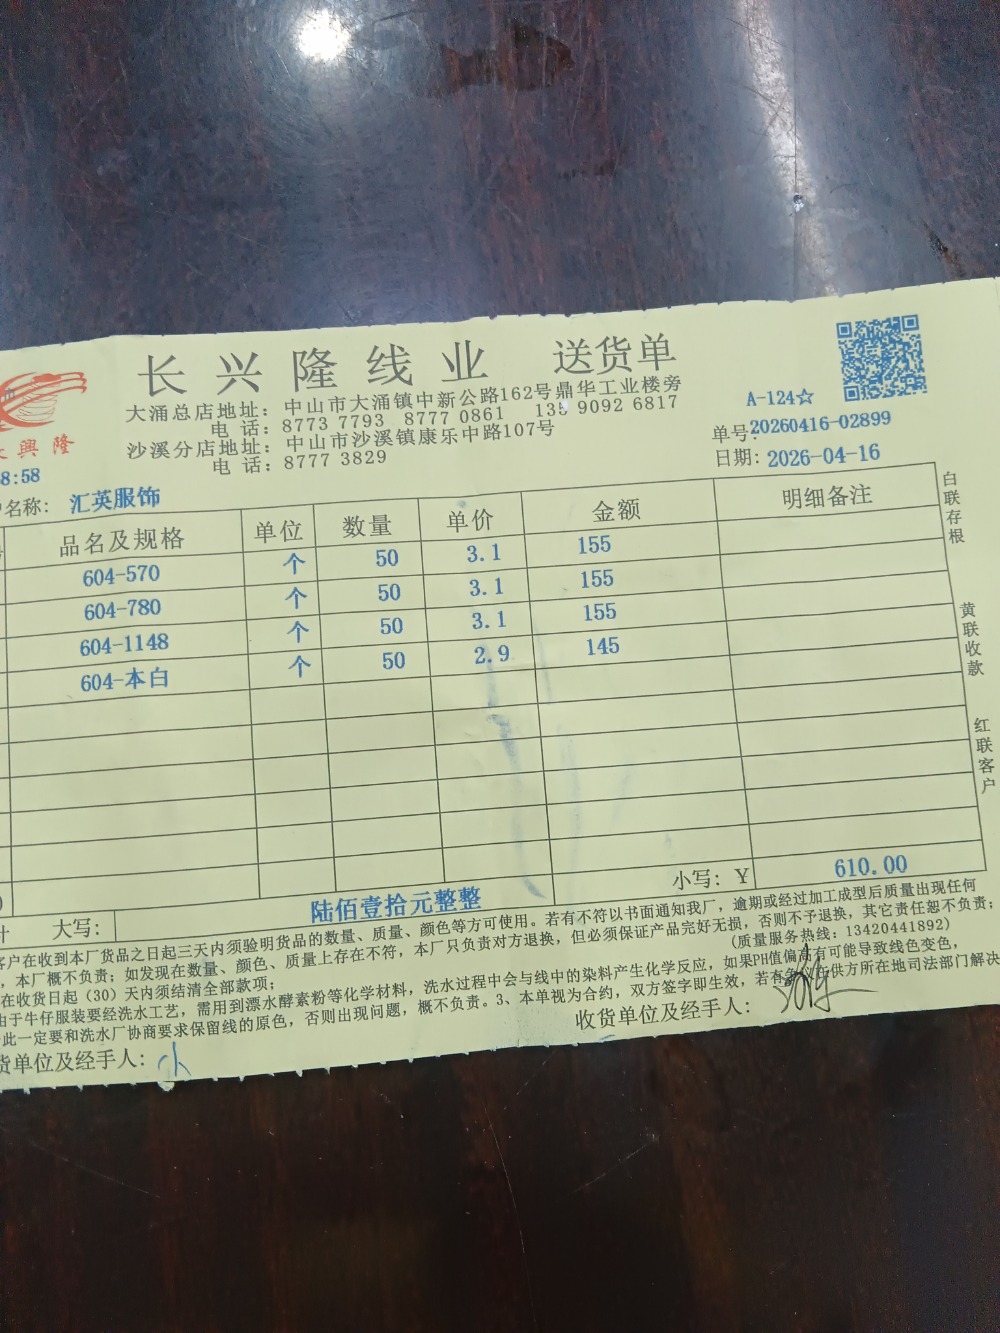 长兴隆线业 送货单
大涌总店地址: 中山市大涌镇中新公路162号鼎华工业楼旁
电 话: 8773 7793 8777 0861 135 9092 6817
沙溪分店地址: 中山市沙溪镇康乐中路107号
电 话: 8777 3829
興隆
8:58
A-124☆
单号: 20260416-02899
日期: 2026-04-16
名称: 汇英服饰
品名及规格 单位 数量 单价 金额 明细备注
604-570 个 50 3.1 155
604-780 个 50 3.1 155
604-1148 个 50 3.1 155
604-本白 个 50 2.9 145
白联存根
黄联收款
红联客户
大写: 陆佰壹拾元整整 小写: ¥ 610.00
客户在收到本厂货品之日起三天内须验明货品的数量、质量、颜色等方可使用。若有不符以书面通知我厂, 逾期或经过加工成型后质量出现任何
, 本厂概不负责; 如发现在数量、颜色、质量上存在不符, 本厂只负责对方退换, 但必须保证产品完好无损, 否则不予退换, 其它责任恕不负责;
在收货日起 (30) 天内须结清全部款项; (质量服务热线: 13420441892)
由于牛仔服装要经洗水工艺, 需用到漂水酵素粉等化学材料, 洗水过程中会与线中的染料产生化学反应, 如果PH值偏高有可能导致线色变色,
此一定要和洗水厂协商要求保留线的原色, 否则出现问题, 概不负责。3、本单视为合约, 双方签字即生效, 若有争议在供方所在地司法部门解决
货单位及经手人: 收货单位及经手人: